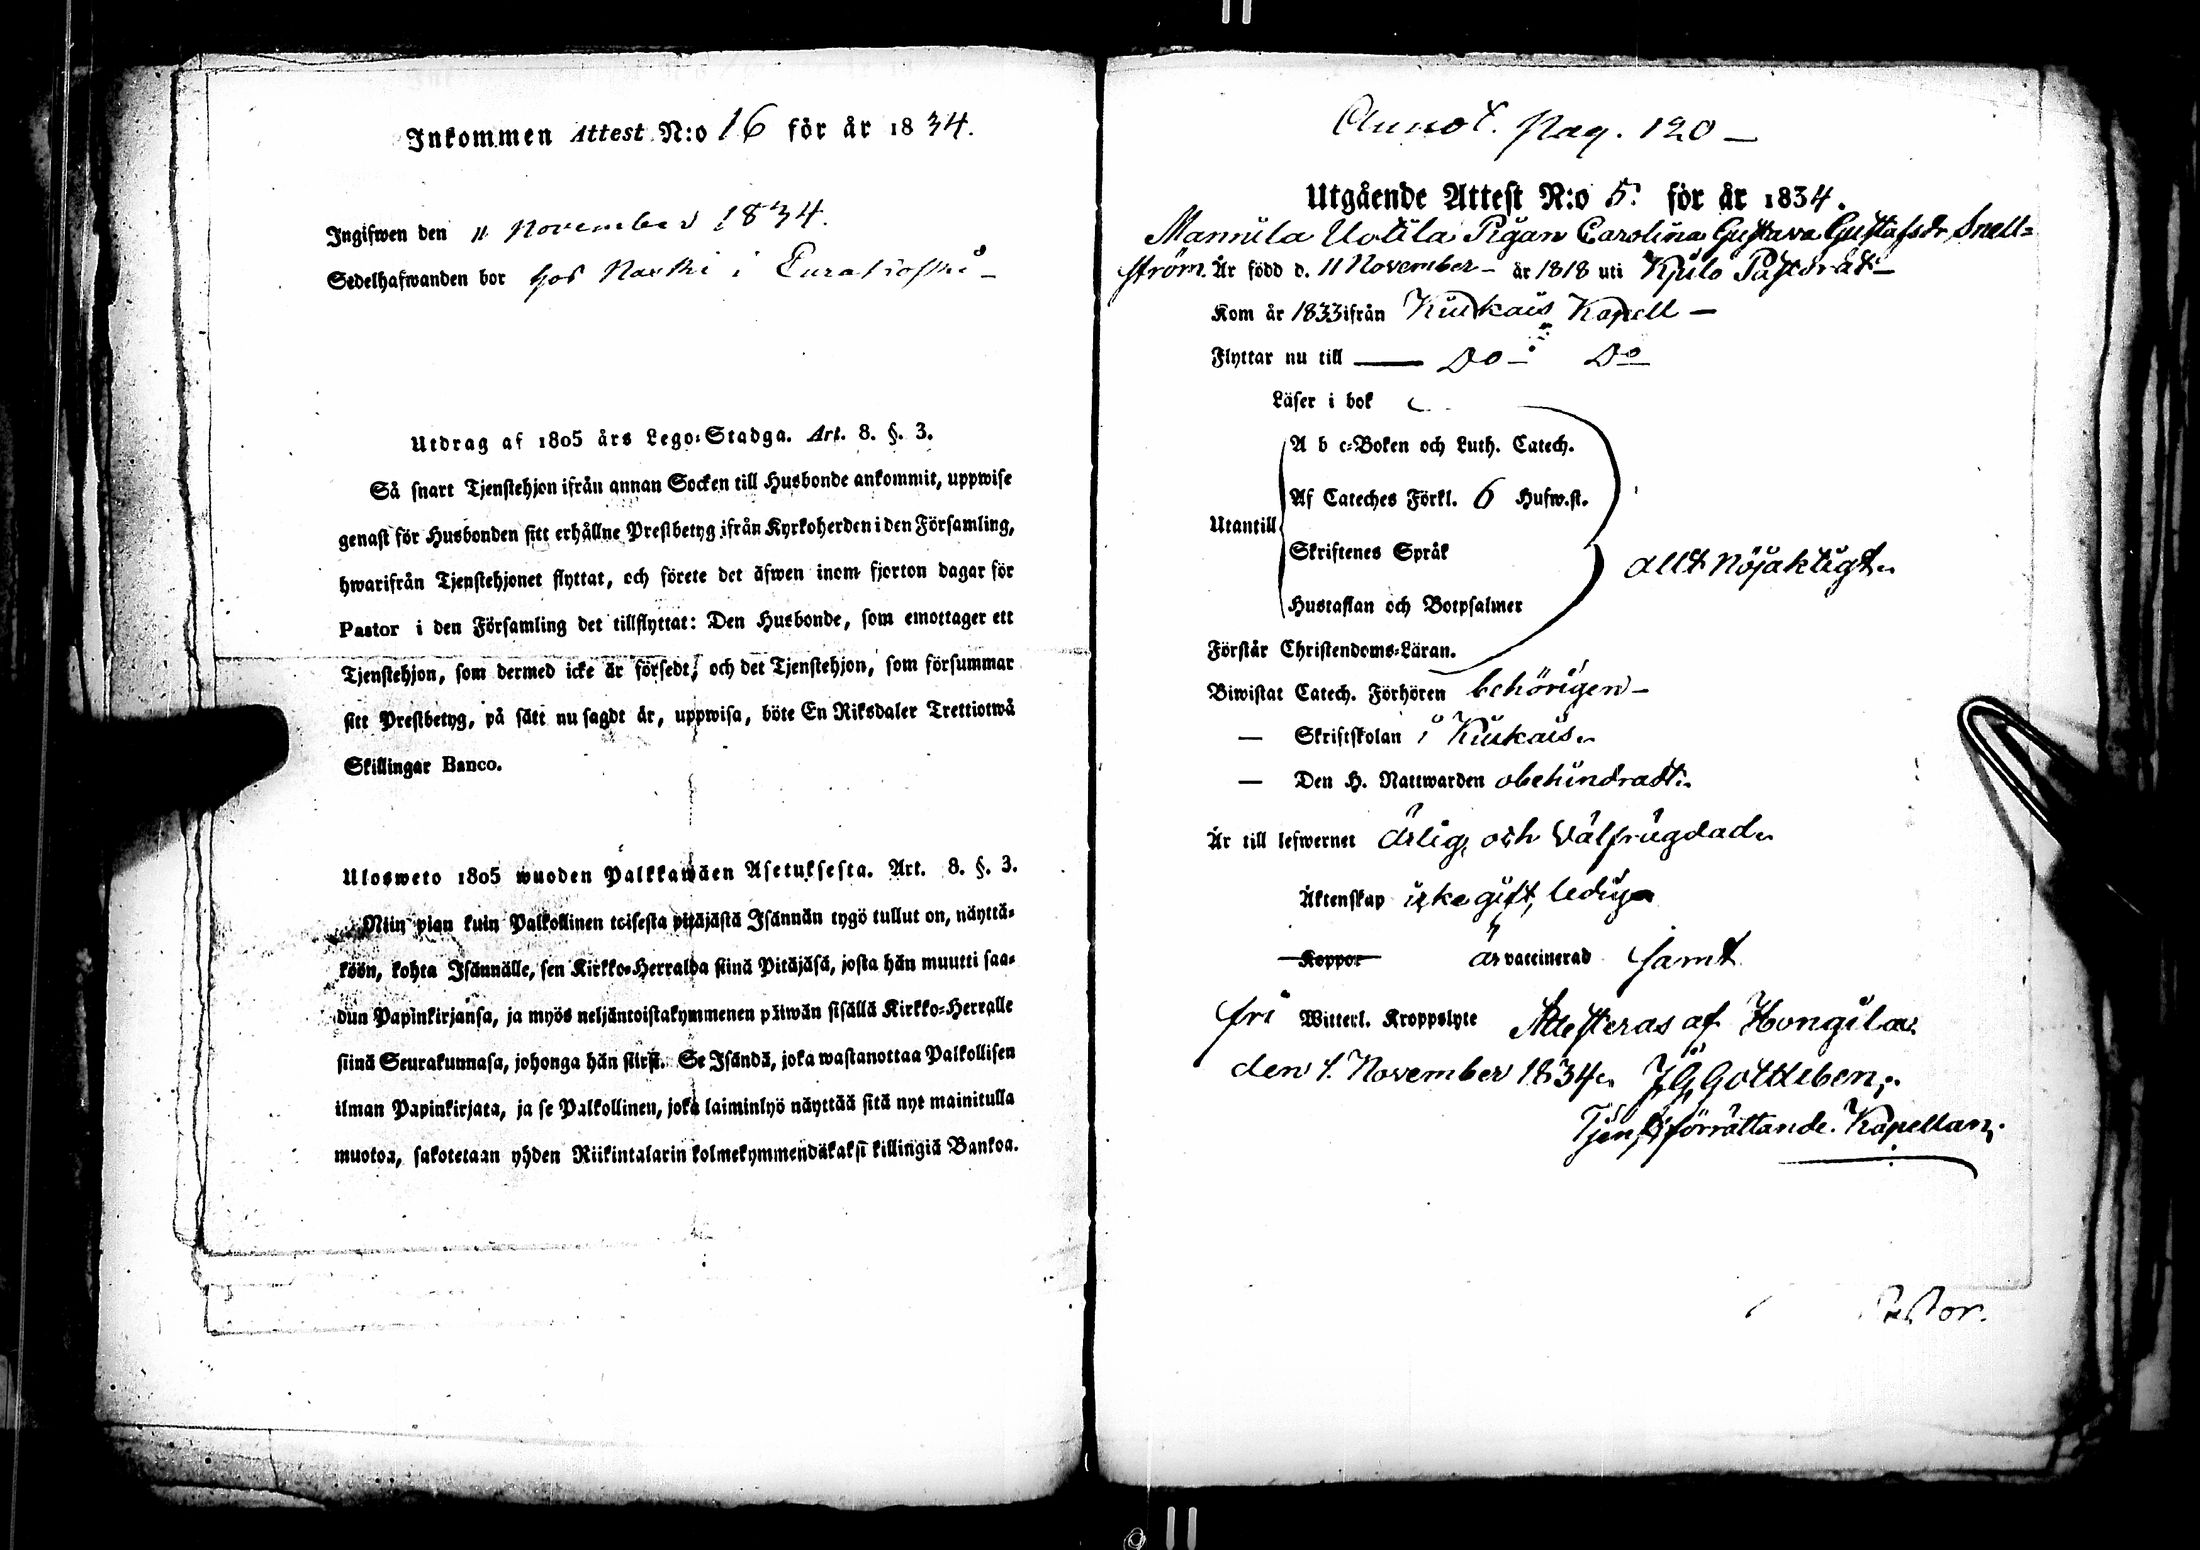 Inkommen Attest N:o 16 för år 1834.
Ingifwen den 11 November 1834.
Sedelhafwanden bor hos Naski i
Utdrag af 1805 års Lego-Stadga. Art. 8. §. 3.
Så snart Tjenstehjon ifrån annan Socken till Husbonde ankommit, uppwise
genast för Husbonden sitt erhållne Prestbetyg ifrån Kyrkoherden i den Församling,
hwarifrån Tjenstehjonet flyttat, och förete det äfwen inom fjorton dagar för
Pastor i den Församling det tillflyttat: Den Husbonde, som emottager ett
Tjenstehjon, som dermed icke är försedt, och det Tjenstehjon, som försummar
sitt Prestbetyg, på sätt nu sagdt är, uppwisa, böte En Riksdaler Trettiotwå
Skillingar Banco.
Ulosweto 1805 wuoden Palkkawäen Asetuksesta. Art. 8. §. 3.
Niin pian kuin Palkollinen toisesta pitäjästä Isännän tygö tullut on, näyttä-
köön, kohta Isännälle, sen Kirkko-Herralda siinä Pitäjäsä, josta hän muutti saa-
dun Papinkirjansa, ja myös neljäntoistakymmenen päiwän sisällä Kirkko-Herralle
siinä Seurakunnasa, johonga hän siirsi. Se Isändä, joka wastanottaa Palkollisen
ilman Papinkirjata, ja se Palkollinen, joka laiminlyö näyttää sitä nyt mainitulla
muotoa, sakotetaan yhden Riikintalarin kolmekymmendäkaksi killingiä Bankoa.
Annot. Pag. 120 —
Utgående Attest N:o 5. för år 1834.
Mannila Uotila Pigan Carolina Gustava Gustafsdr Snell=
ström. Är född d. 11 November — år 1818 uti Kjulo Pastorat —
Kom år 1833 ifrån Kiukais Kapell —
Flyttar nu till — Do — Do
Läser i bok
A b c-Boken och Luth. Catech.
Af Cateches Förkl. 6 Hufw.st.
Utantill
Skriftenes Språk
allt nöjaktigt.
Hustaflan och Botpsalmer
Förstår Christendoms-Läran.
Biwistat Catech. Förhören behörigen —
— Skriftskolan i Kiukais.
— Den H. Nattwarden obehindradt.
Är till lefwernet ärlig, och välfrägdad.
Äktenskap icke gift, ledig
Koppor är vaccinerad samt
fri Witterl. Kroppslyte Attesteras af Hongila
den 1. November 1834. J. G. Gottleben,
Tjenstförrättande. Kapellan.